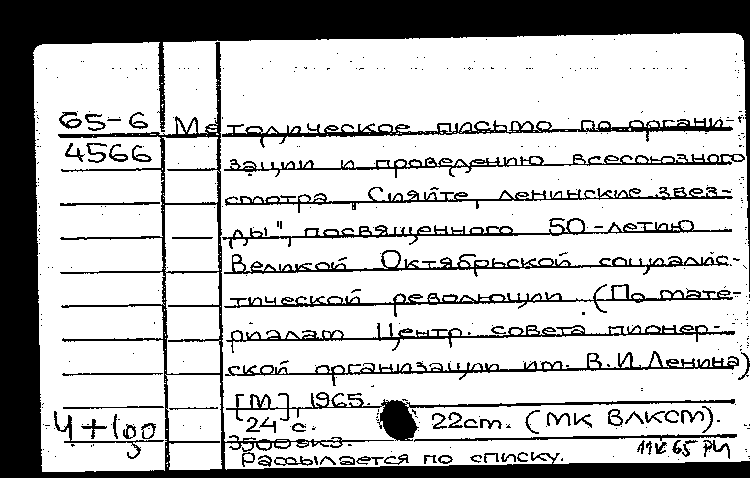 65-6 Методическое письмо по органи-
4566 зации и проведению всесоюзного
смотра „Сияйте, ленинские звез-
ды", посвященного 50-летию
Великой Октябрьской социалис-
тической революции (По мате-
риалам Центр. совета пионер-
ской организации им. В.И.Ленина)
[М], 1965.
24 с. 22см. (МК ВЛКСМ).
3500 экз.
Рассылается по списку.